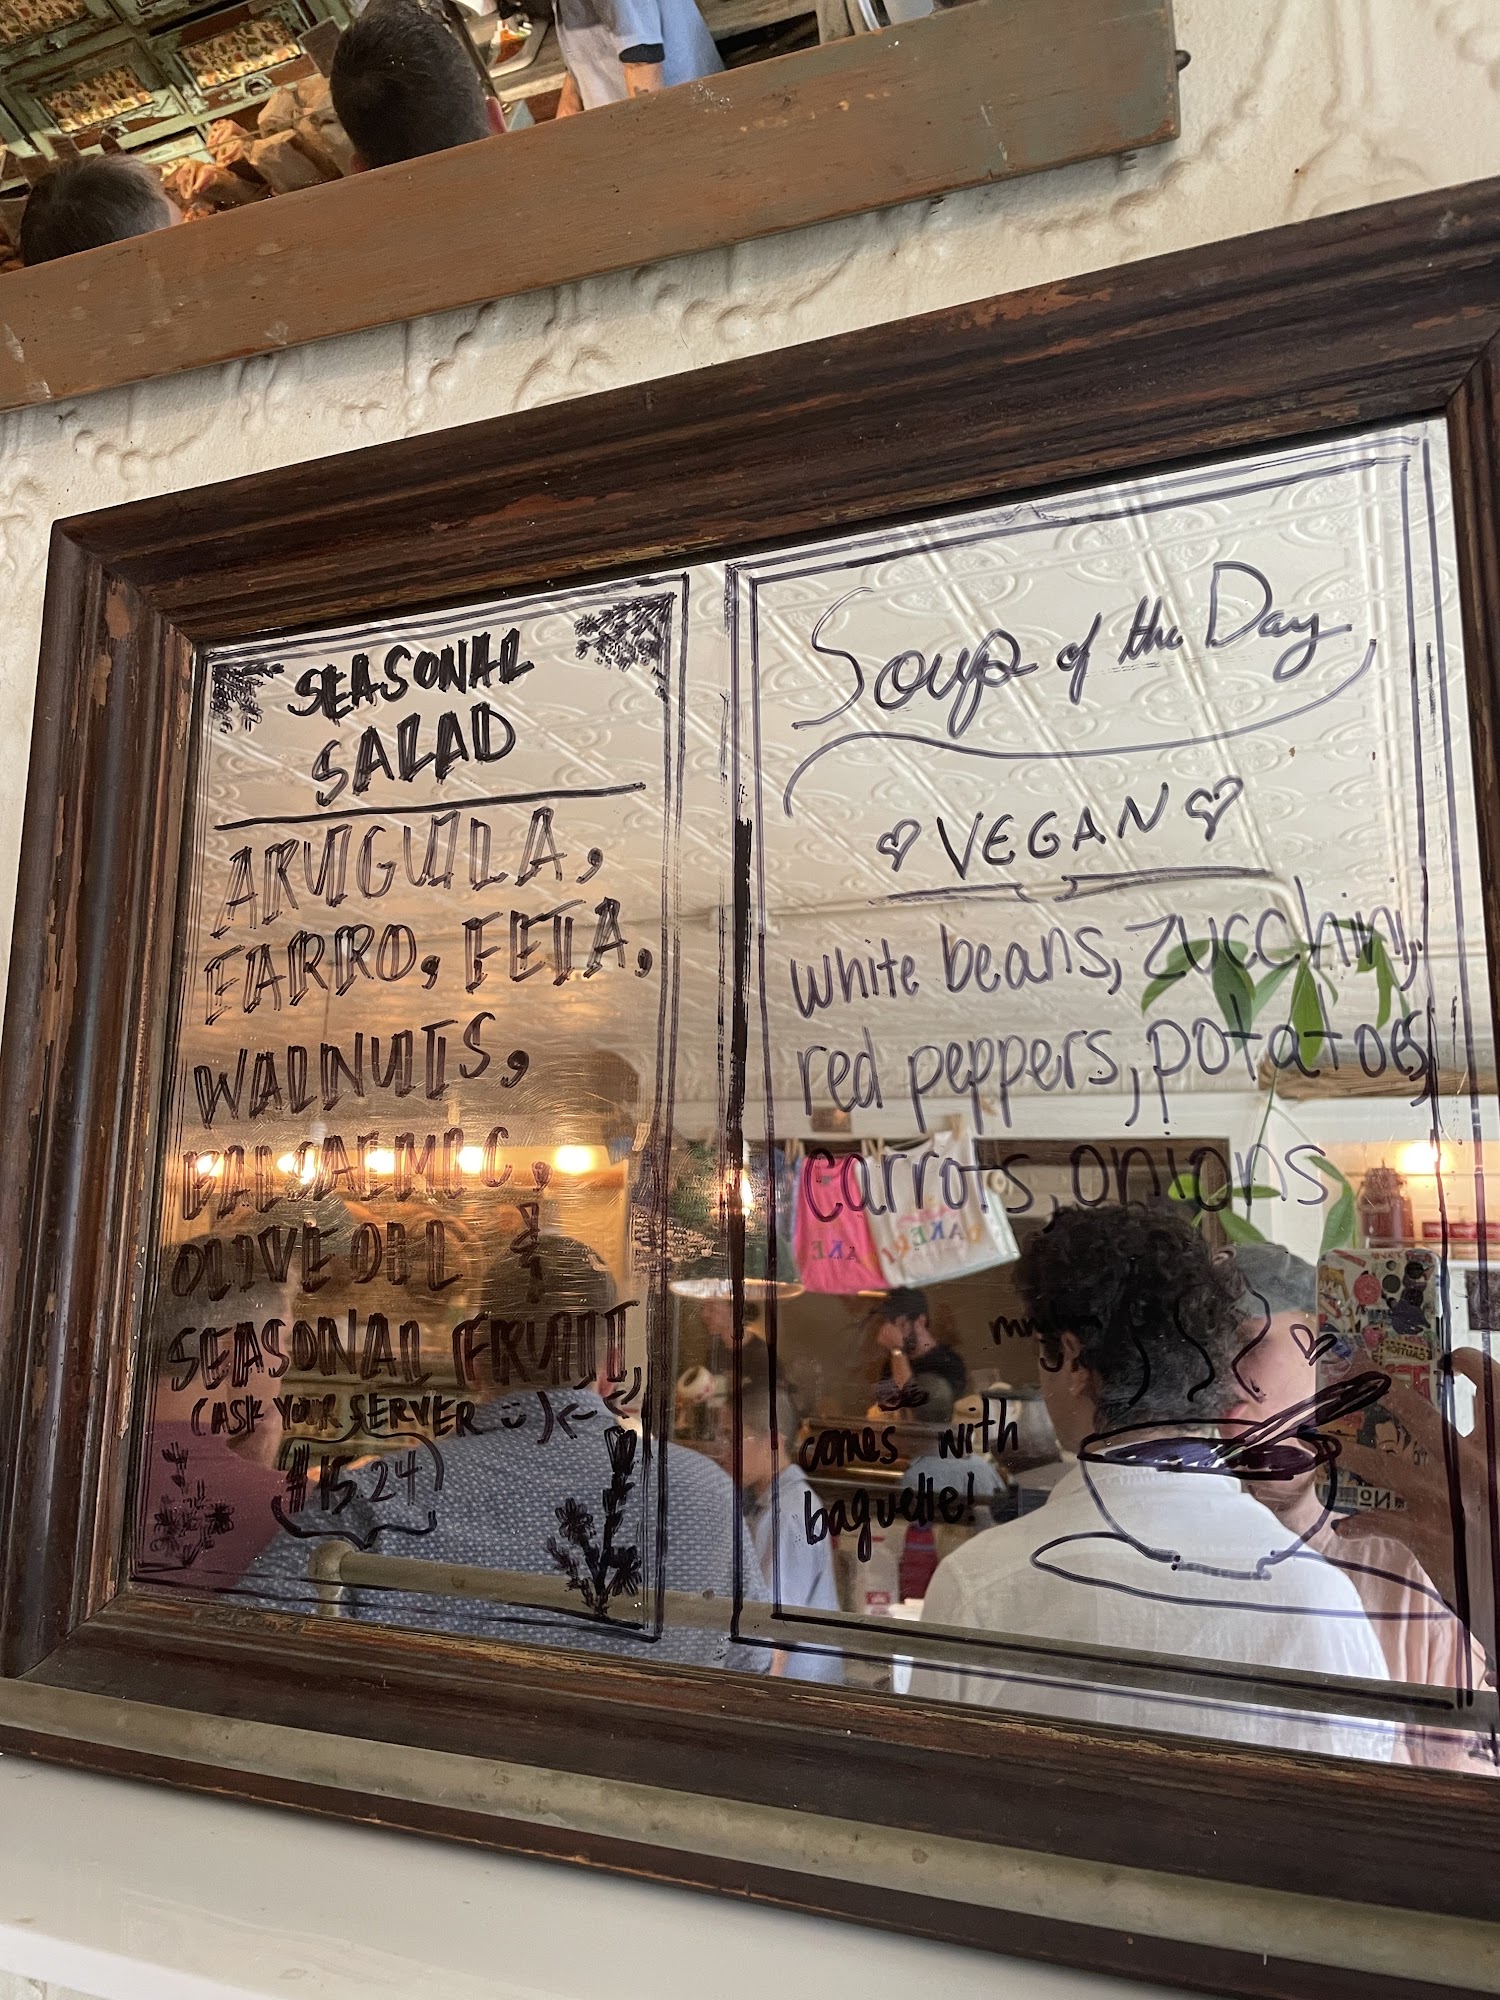 SEASONAL
SALAD
ARUGULA,
FARRO, FETA,
WALNUTS,
BALSALMIC,
OLIVE OIL &
SEASONAL FRUIT,
(ASK YOUR SERVER
$15.24
Soup of the Day
VEGAN
white beans, zucchini,
red peppers, potatoes,
carrots, onions
comes with
baguette!